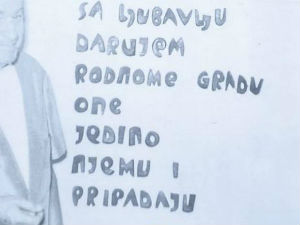 SA LJUBAVLJU
DARUJEM
RODNOME GRADU
ONE
JEDINO
NJEMU I
PRIPADAJU